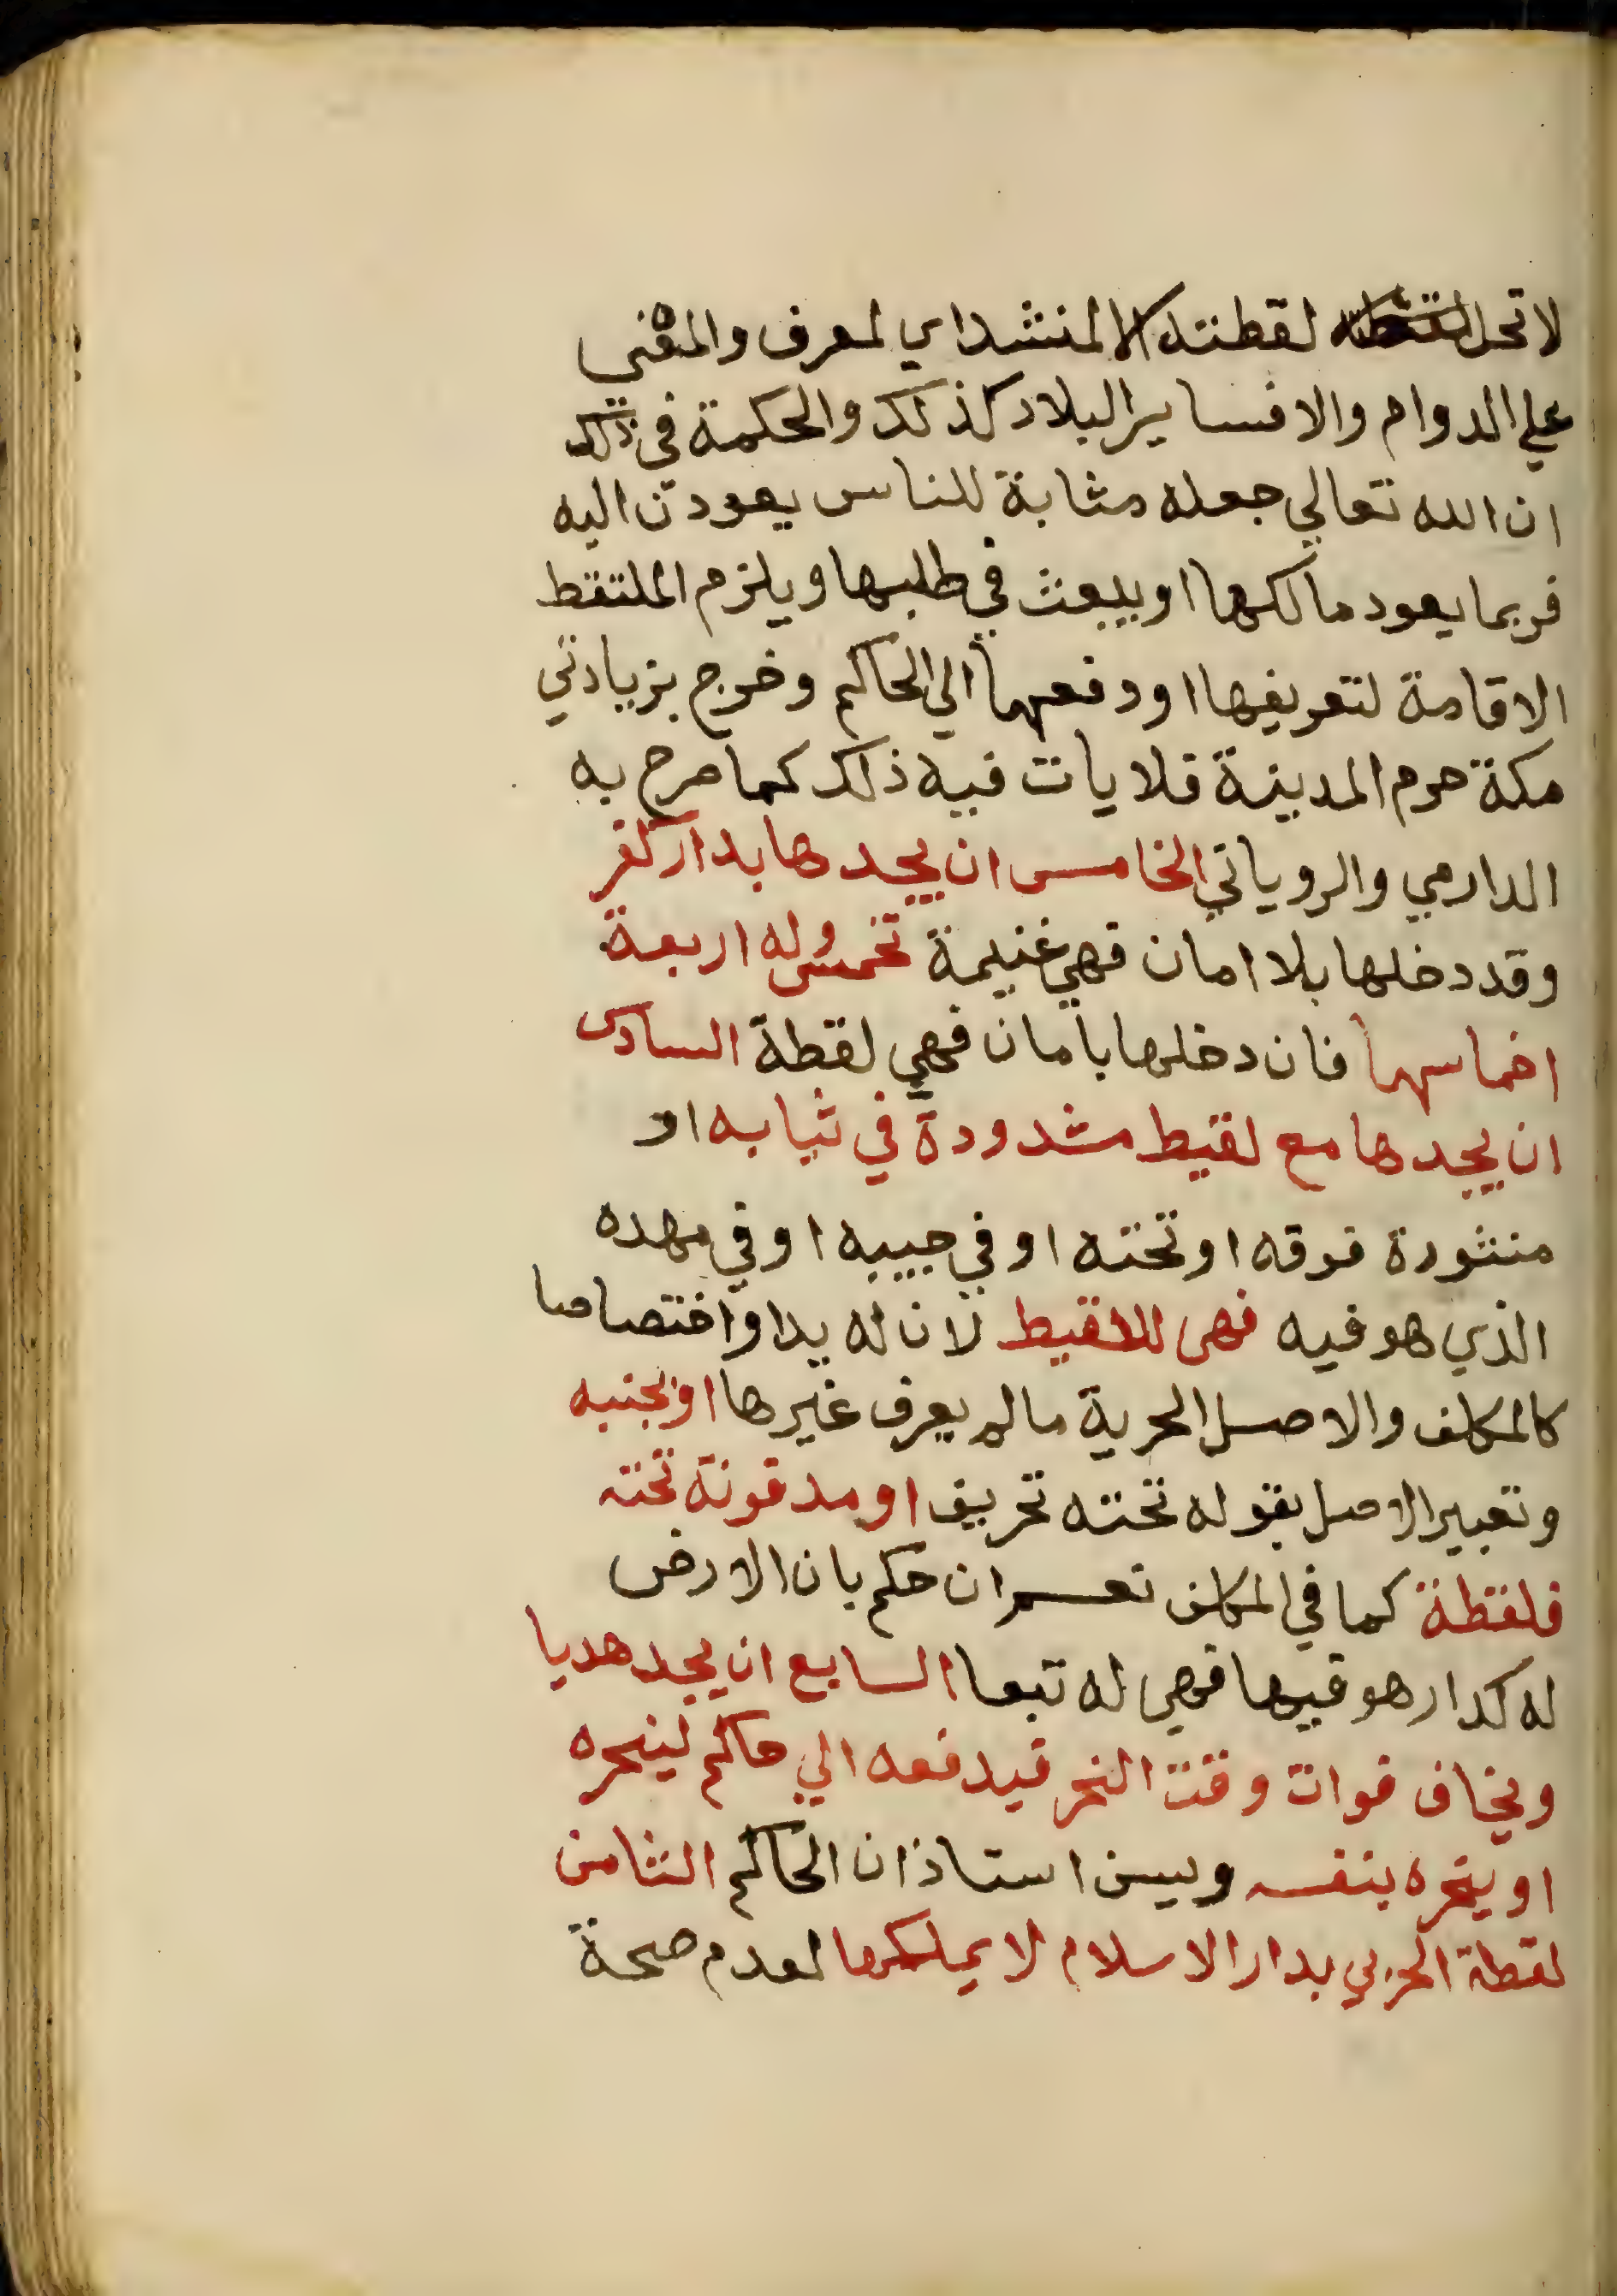 لا تحل لقطته الا لمنشد اي لمعرف والمعني
علي الدوام والا فساير البلاد كذلك والحكمة في ذلك
ان الله تعالي جعله مثابة للناس يعودون اليه
فربما يعود مالكها او يبعث في طلبها ويلزم الملتقط
الاقامة لتعريفها او دفعها الي الحاكم وخرج بزيادتي
مكة حرم المدينة فلا يات فيه ذلك كما صرح به
الدارمي والروياني الخامس ان يجدها بدار كفر
وقد دخلها بلا امان فهي غنيمة تخمس وله اربعة
اخماسها فان دخلها بامان فهي لقطة السادس
ان يجدها مع لقيط مشدودة في ثيابه او
منثورة فوقه او تحته او في جيبه او في مهده
الذي هو فيه فهي للقيط لان له يدا واختصاصا
كالمكلف والاصل الحرية مالم يعرف غيرها او بجنبه
وتعبير الاصل بقوله تحته تحريف او مدفونة تحته
فلقطة كما في المكلف نعم ان حكم بان الارض
له كدار هو فيها فهي له تبعا السابع ان يجد هديا
ويخاف فوات وقت النحر فيدفعه الي حاكم لينحره
او ينحره بنفسه ويسن استاذان الحاكم الثامن
لقطة الحربي بدار الاسلام لا يملكها لعدم صحة